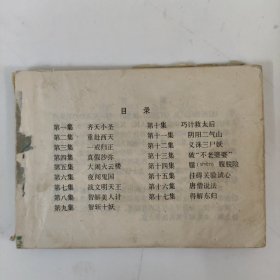 目 录
第一集 齐天小圣
第二集 重赴西天
第三集 一戒归正
第四集 真假沙弥
第五集 大闹火云楼
第六集 夜闯鬼国
第七集 战文明天王
第八集 智解美人计
第九集 智斩十妖
第十集 巧计救太后
第十一集 阴阳二气山
第十二集 义诛三尸妖
第十三集 破“不老婆婆”
第十四集
第十五集 挂碍关验诚心
第十六集 唐僧说法
第十七集 得解东归